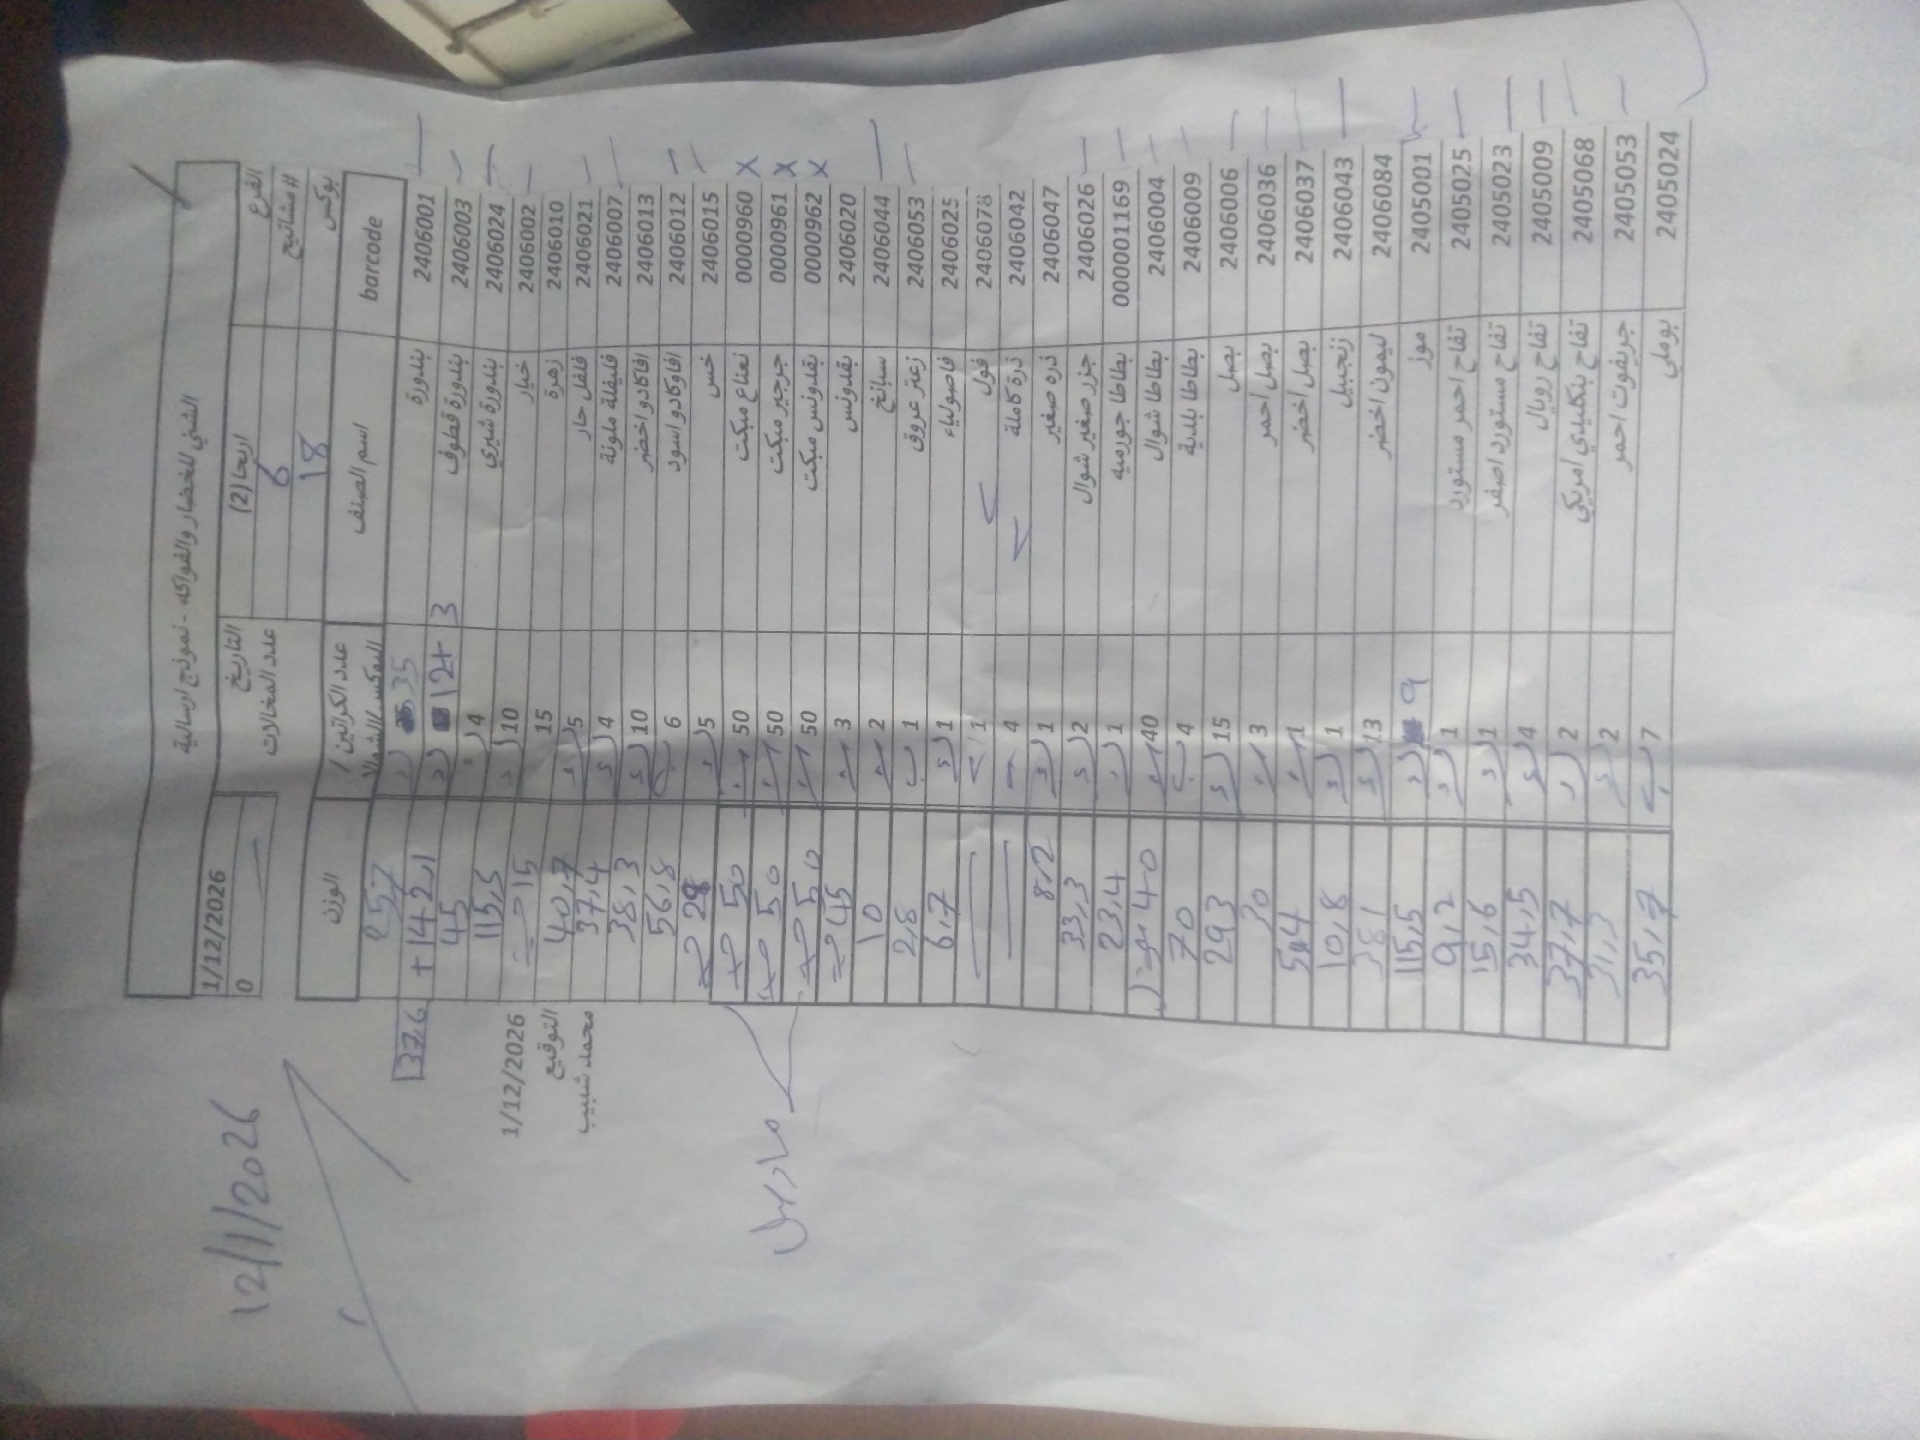 الشني للخضار والفواكه - نموذج ارسالية
الفرع اريحا (2) التاريخ 1/12/2026
# مشاتيح 6 عدد المغالات 0
بوكس 18
barcode اسم الصنف عدد الكراتين / البوكس / الشوال الوزن
2406001 بندورة 35 257
2406003 بندورة قطوف 12+3 142,1 + 37,6
2406024 بندورة شيري 4 45
2406002 خيار 10 115,5
2406010 زهرة 15 15
2406021 فلفل حار 5 40,7
2406007 فليفلة ملونة 4 37,4
2406013 افاكادو اخضر 10 38,3
2406012 افاوكادو اسود 6 56,8
2406015 خس 5 28
0000960 نعناع مبكت 50 50
0000961 جرجير مبكت 50 50
0000962 بقدونس مبكت 50 50
2406020 بقدونس 3 45
2406044 سبانخ 2 10
2406053 زعتر عروق 1 2,8
2406025 فاصولياء 1 6,7
2406078 فول 1
2406042 ذرة كاملة 4
2406047 ذره صغير 1 8,2
2406026 جزر صغير شوال 2 33,3
000001169 بطاطا جورميه 1 23,4
2406004 بطاطا شوال 40 40
2406009 بطاطا بلدية 4 70
2406006 بصل 15 293
2406036 بصل احمر 3 30
2406037 بصل اخضر 1 5,4
2406043 زنجبيل 1 10,8
2406084 ليمون اخضر 13 381
2405001 موز 9 115,5
2405025 تفاح احمر مستورد 1 9,2
2405023 تفاح مستورد اصفر 1 15,6
2405009 تفاح رويال 4 34,5
2405068 تفاح بنكليدي امريكي 2 37,7
2405053 جريفوت احمر 2 31,3
2405024 بوملي 7 35,7
1/12/2026
التوقيع
محمد شبيب
12/1/2026